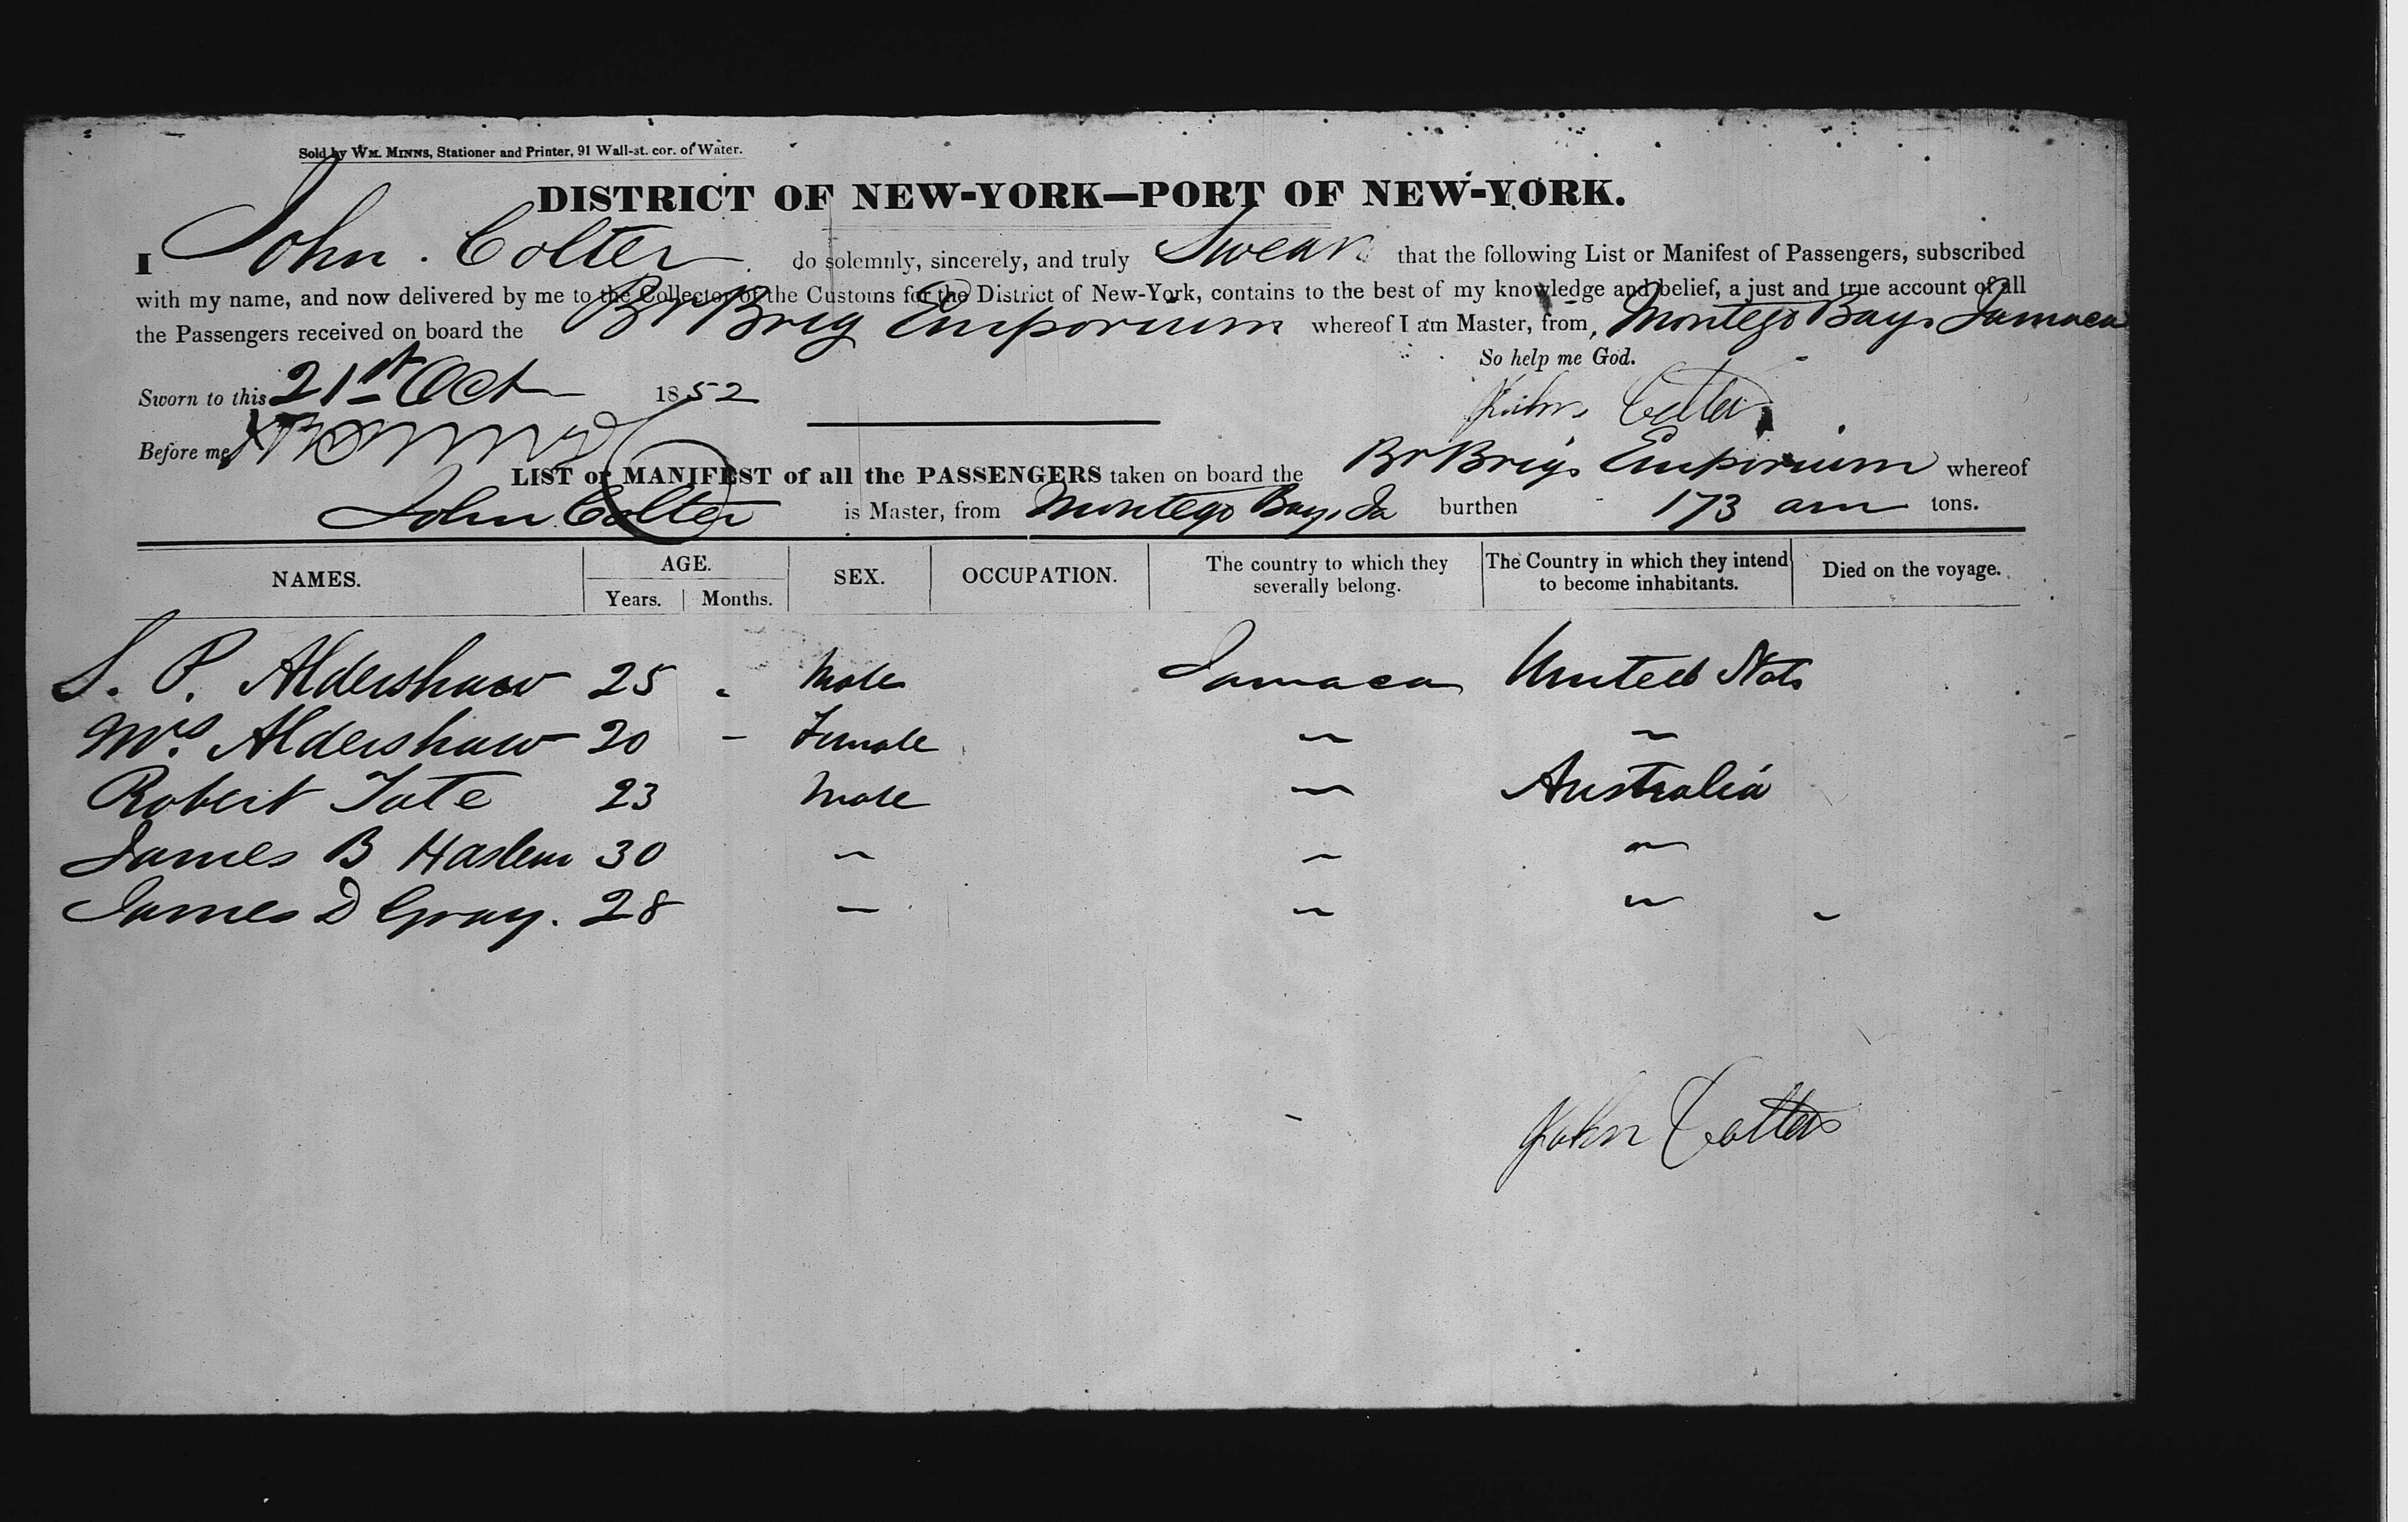 Sold by WM. MINNS, Stationer and Printer, 91 Wall-st. cor. of Water.
DISTRICT OF NEW-YORK—PORT OF NEW-YORK.
I John Colter do solemnly, sincerely, and truly Swear that the following List or Manifest of Passengers, subscribed
with my name, and now delivered by me to the Collector of the Customs for the District of New-York, contains to the best of my knowledge and belief, a just and true account of all
the Passengers received on board the Br Brig Emporium whereof I am Master, from Montego Bay Jamaca
So help me God.
Sworn to this 21st Oct 1852
John Colter
Before me
LIST or MANIFEST of all the PASSENGERS taken on board the Br Brig Emporium whereof
John Colter is Master, from Montego Bay Ja burthen 173 tons.
NAMES. AGE. Years. Months. SEX. OCCUPATION. The country to which they severally belong. The Country in which they intend to become inhabitants. Died on the voyage.
S. P. Aldershaw 25 " Male Jamaca United Stats
Mrs. Aldershaw 20 - Female " "
Robert Tate 23 Male " Australia
James B Haslem 30 " " "
James D Gray. 28 " " " "
John Colter